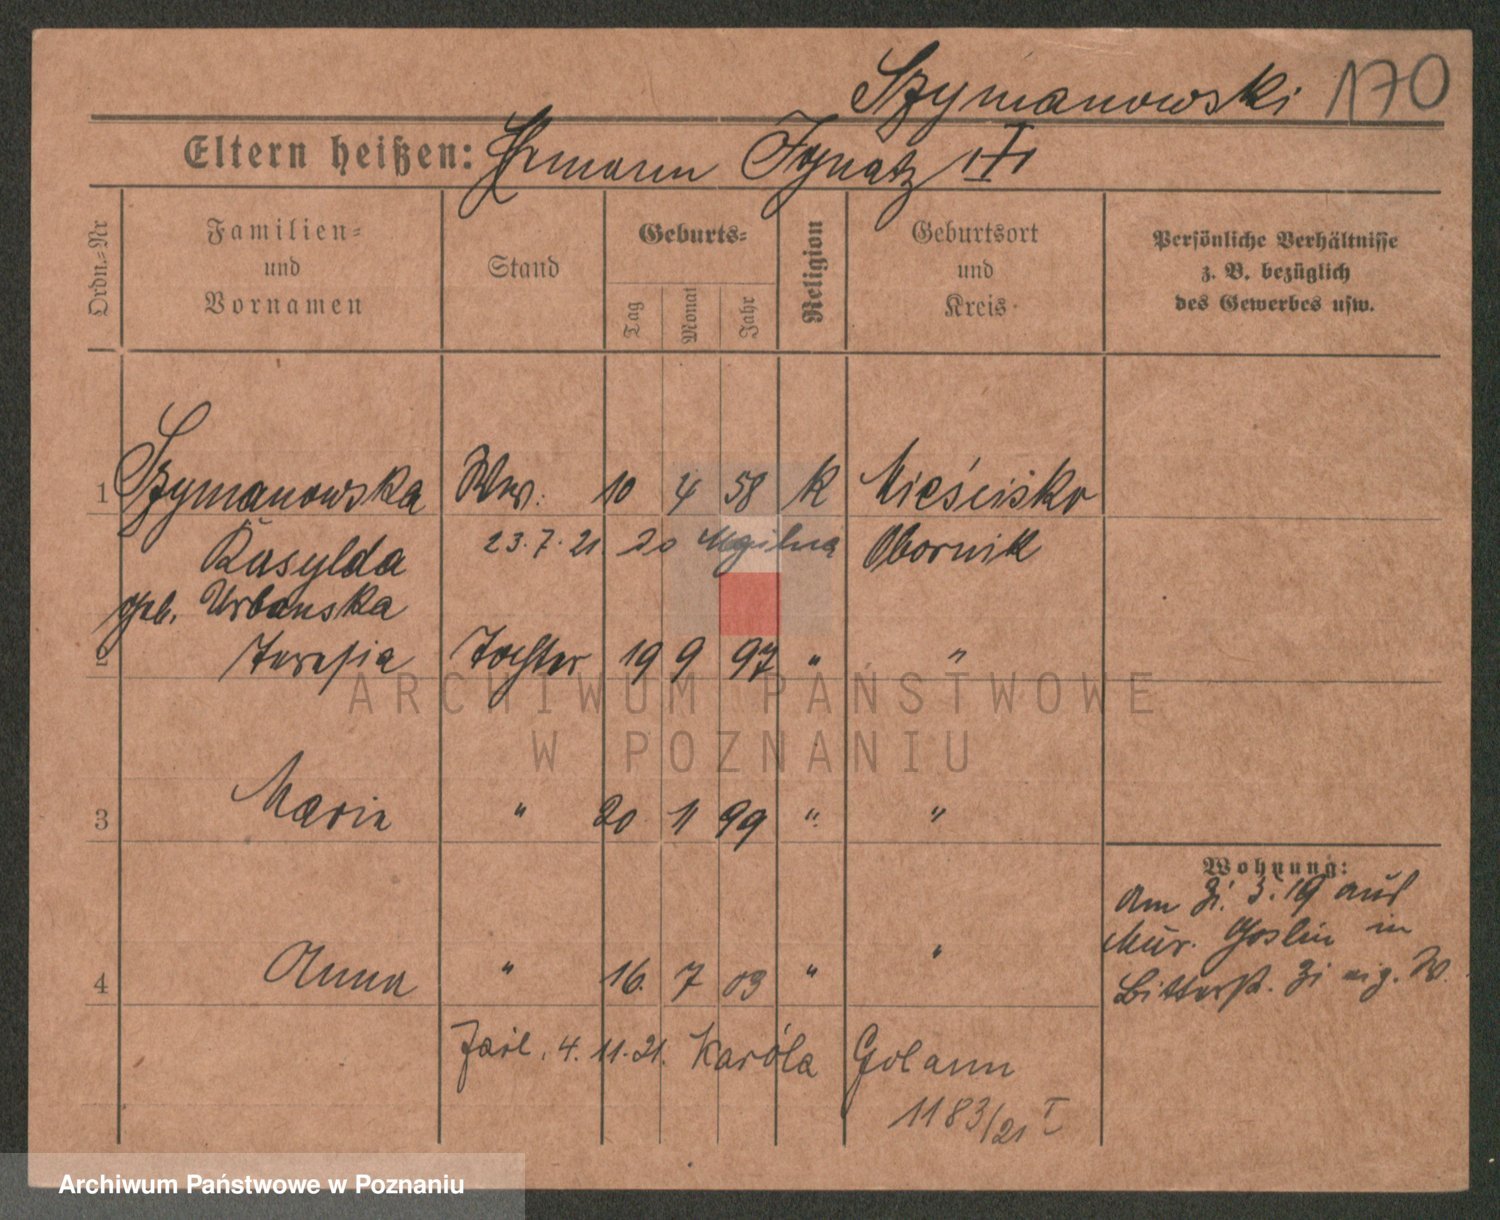 Szymanowski 170
Eltern heißen: Hermann Ignatz
Ordn.-Nr
Familien-
und
Vornamen
Stand
Geburts-
Tag
Monat
Jahr
Religion
Geburtsort
und
Kreis
Persönliche Verhältnisse
z. B. bezüglich
des Gewerbes usw.
1 Szymanowska Ww. 10 4 58 K Mieścisko
Kasylda 23.7.21 20 Obornik
geb. Urbanska
2 Teresia Tochter 19 9 97 " "
3 Maria " 20 11 99 " "
Wohnung:
am 21. 3. 19 aus
Mur. Goslin in
Bitterst. 21 eig. W.
4 Anna " 16. 7 03 " "
4.11.21. Karóla Golann
1183/21 I
ARCHIWUM PAŃSTWOWE
W POZNANIU
Archiwum Państwowe w Poznaniu